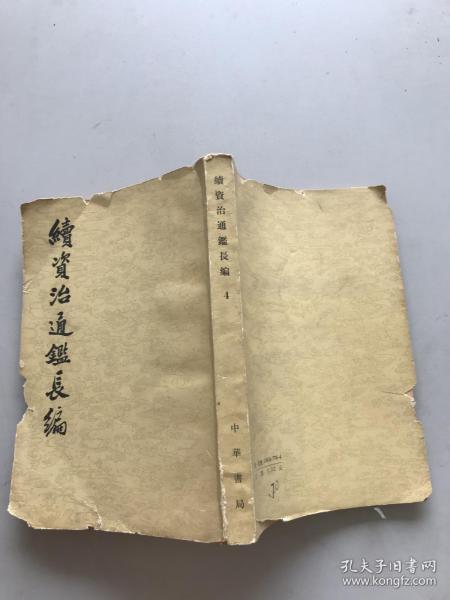 續資治通鑑長編
續資治通鑑長編
4
中華書局
孔夫子旧书网
www.kongfz.com